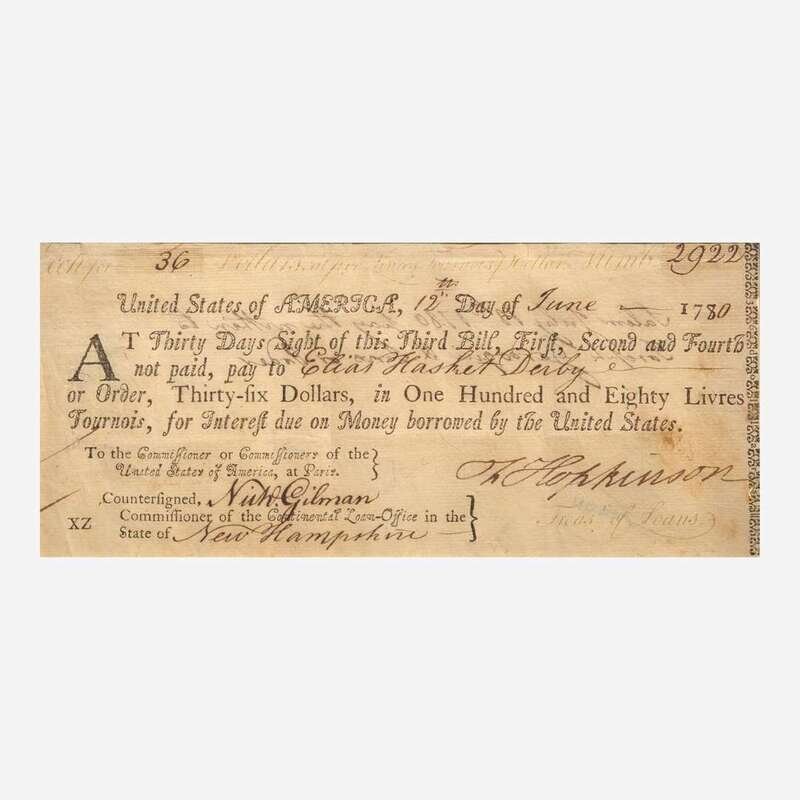 36 Dollars, Numb. 2922
United States of AMERICA, 12th Day of June 1780
AT Thirty Days Sight of this Third Bill, First, Second and Fourth
not paid, pay to Elias Hasket Derby
or Order, Thirty-ſix Dollars, in One Hundred and Eighty Livres
Tournois, for Intereſt due on Money borrowed by the United States.
To the Commiſſioner or Commiſſioners of the
United States of America, at Paris.
Hopkinson
Treas. of Loans
Counterſigned, Gilman
Commiſſioner of the Continental Loan-Office in the
XZ
State of New Hampshire